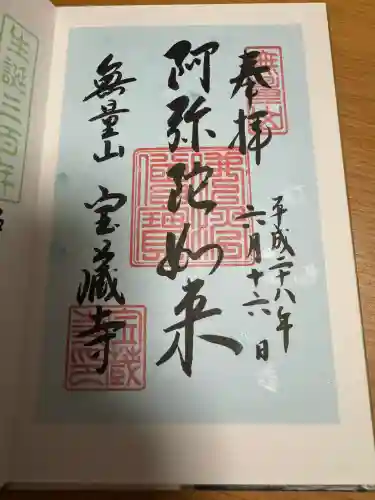 奉拝
平成二十八年
六月十六日
阿弥陀如来
無量山 宝蔵寺
無量山
生誕三百年